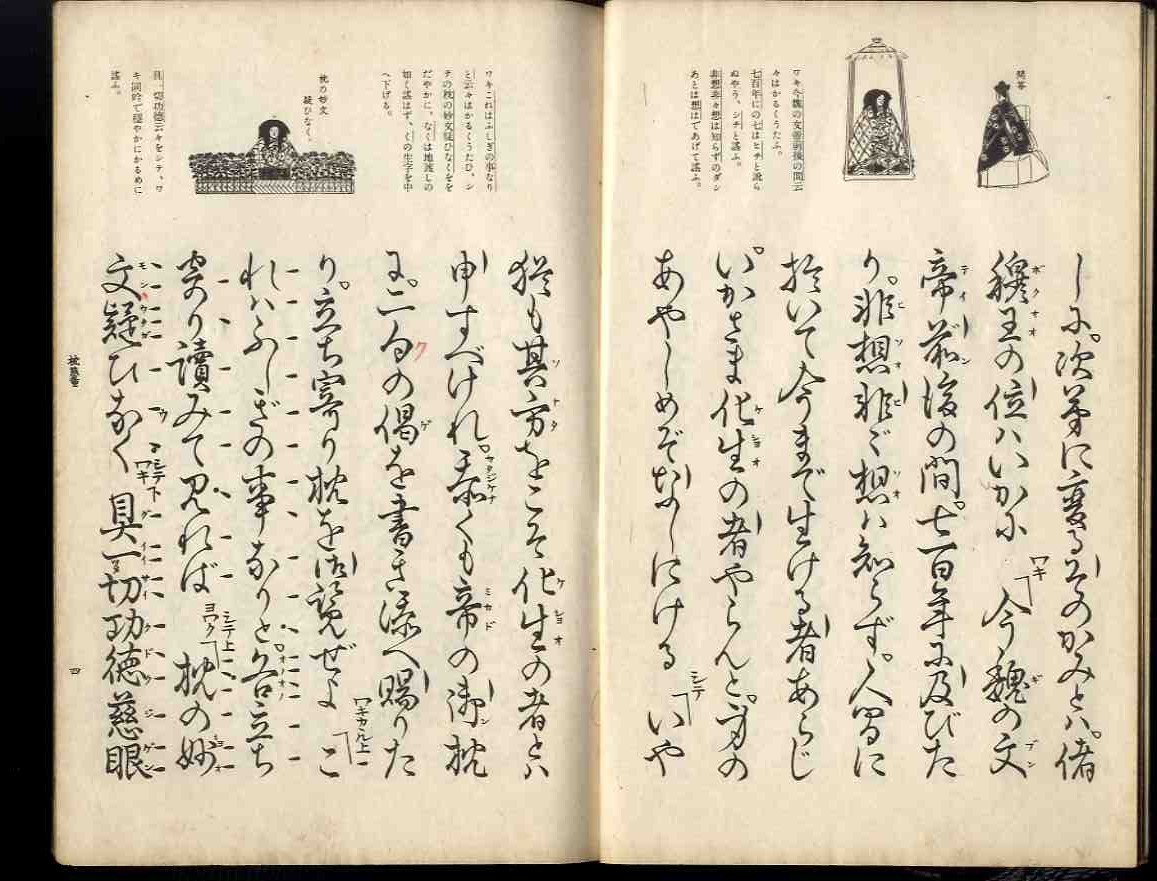 問答
ワキ今魏の文帝前後の間云
々はかるくうたふ。
七百年にの七はヒチと謡ら
ぬやう、シチと謡ふ。
非想非々想は知らずのダン
あとは想はであげて謡ふ。
しに。次第に変るそのかみとハ。偖
穆王の位ハいかに ワキ「今魏の文
帝前後の間。七百年に及びた
り。非想非々想ハ知らず。人間に
於いて今まで生ける者あらじ
いかさま化生の者やらんと。身の
あやしめぞなしにける シテ「いや
猶も其方をこそ化生の者とハ
申すべけれ。忝くも帝の御枕
に。二句の偈を書き添へ賜りた
り。立ち寄り枕を御覧ぜよ ワキカル上「こ
れハふしぎの事なりと。各立ち
寄り讀みて見れば シテ上 ヨワク「枕の妙
文疑ひなく シテ ワキ 下 具一切功徳慈眼
ワキこれはふしぎの事なり
と云々はかるくうたひ、シ
テの枕の妙文疑ひなくをを
だやかに、なくは地渡しの
如く謡はず、くの生字を中
へ下げる。
枕の妙文
疑ひなく。
具一切功徳云々をシテ、ワ
キ同吟で穏やかにかるめに
謡ふ。
枕慈童
四